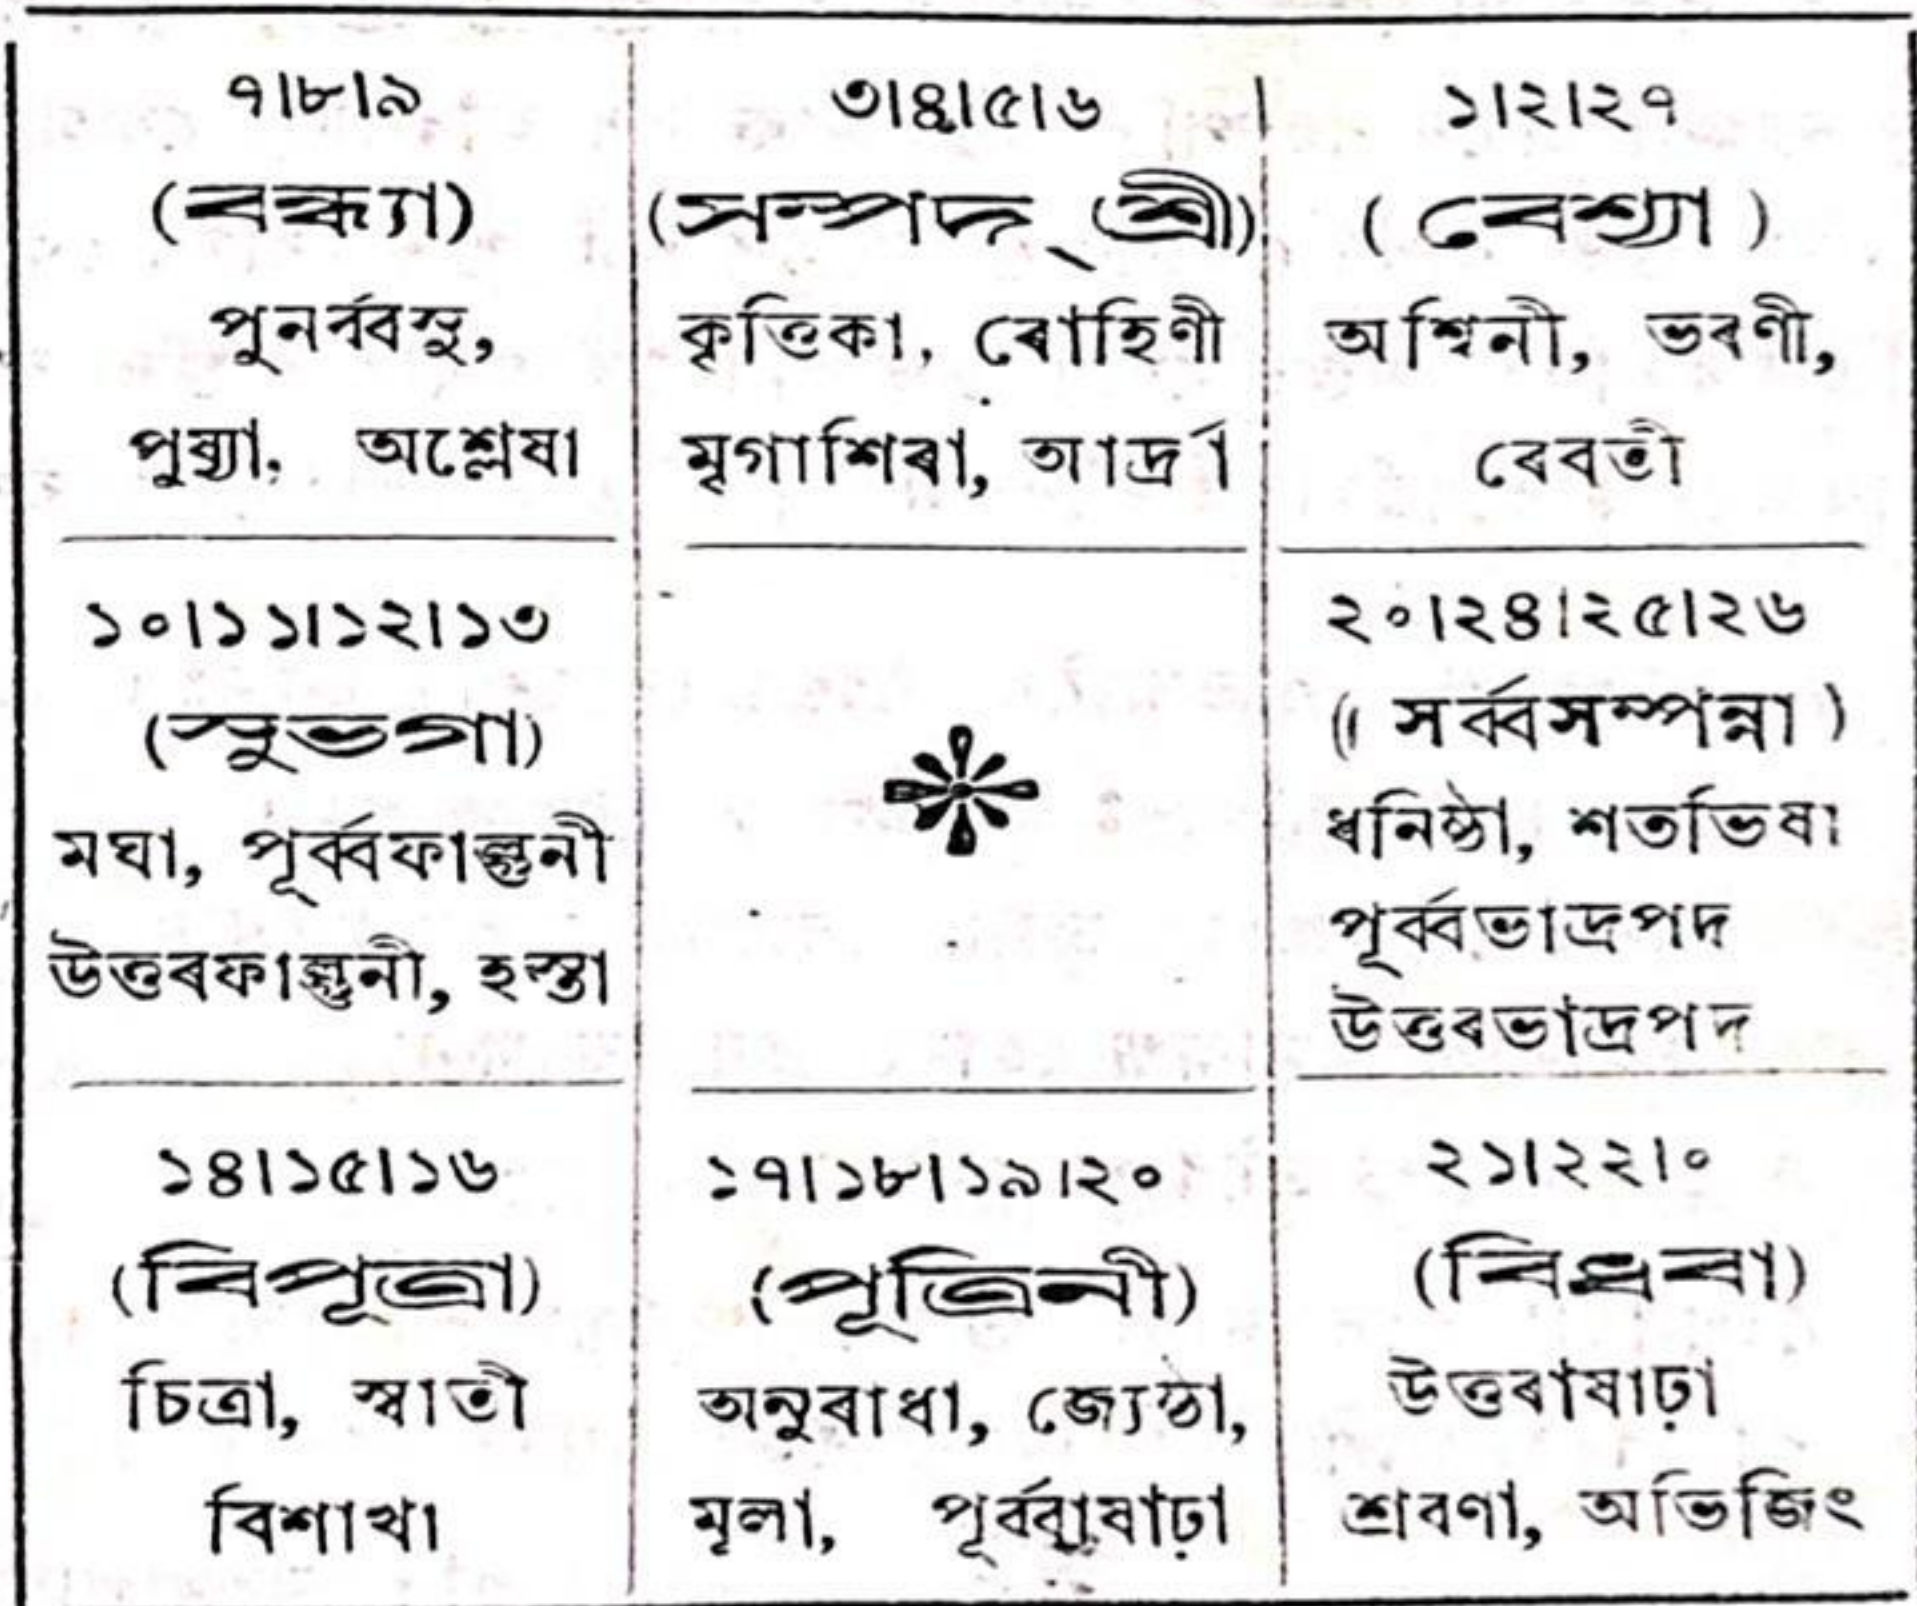 ৭|৮|৯
(বন্ধ্যা)
পুনৰ্ব্বসু,
পুষ্যা, অশ্লেষা
৩|৪|৫|৬
(সম্পদ্ শ্ৰী)
কৃত্তিকা, ৰোহিণী
মৃগাশিৰা, আৰ্দ্ৰা
১|২|২৭
(বেশ্যা)
অশ্বিনী, ভৰণী,
ৰেবতী
১০|১১|১২|১৩
(সুভগা)
মঘা, পূৰ্ব্বফাল্গুনী
উত্তৰফাল্গুনী, হস্তা
২০|২৪|২৫|২৬
(সৰ্ব্বসম্পন্না)
ধনিষ্ঠা, শতভিষা
পূৰ্ব্বভাদ্ৰপদ
উত্তৰভাদ্ৰপদ
১৪|১৫|১৬
(বিপূত্ৰা)
চিত্ৰা, স্বাতী
বিশাখা
১৭|১৮|১৯|২০
(পূত্ৰিনী)
অনুৰাধা, জ্যেষ্ঠা,
মূলা, পূৰ্ব্বাষাঢ়া
২১|২২|০
(বিধবা)
উত্তৰাষাঢ়া
শ্ৰবণা, অভিজিৎ